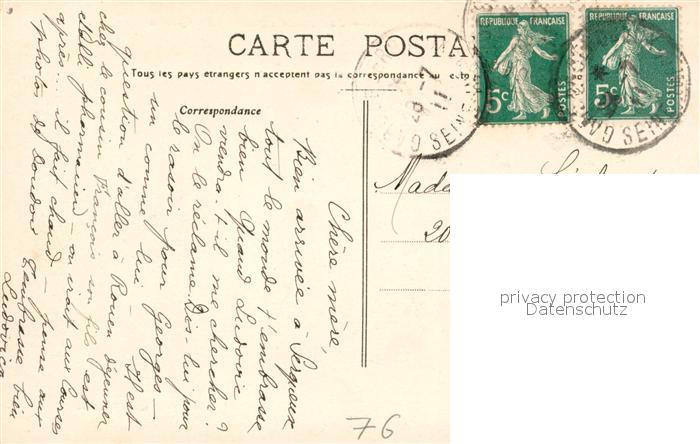 CARTE POSTA
Tous les pays étrangers n'acceptent pas la correspondance au
Correspondance
RÉPUBLIQUE FRANÇAISE
5c
POSTES
RÉPUBLIQUE FRANÇAISE
5c
POSTES
SEINE
GA SEIN
Mada
20
Chère mère,
Bien arrivée à Serqueux
tout le monde t'embrasse
bien Quand Ludovic
viendra-t-il me chercher?
On le réclame. Dis-lui pour
le rasoir pour Georges —
un comme lui — Il est
question d'aller à Rouen déjeuner
chez le cousin François son fils est
pharmacien — on irait aux Courses
après... il fait chaud — pense aux
photos de Doudou
Embrasse bien
Ludovica
76
privacy protection
Datenschutz